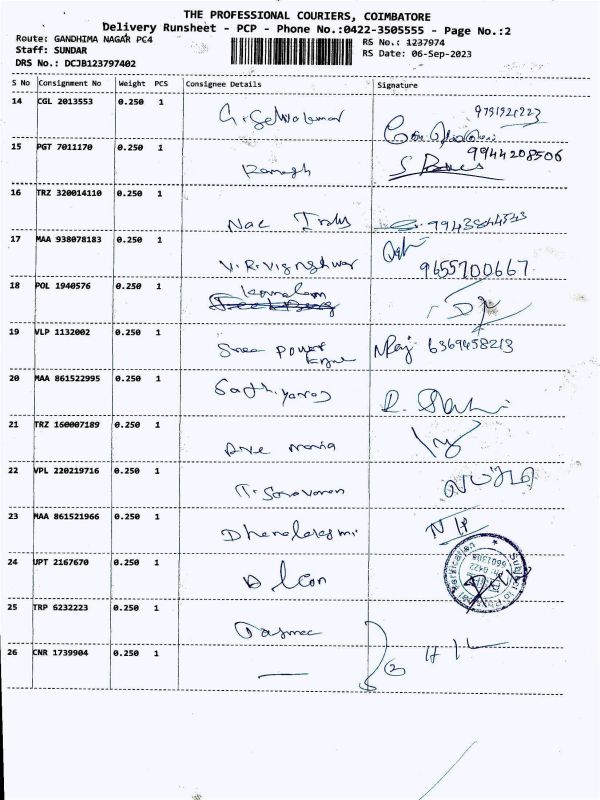 THE PROFESSIONAL COURIERS, COIMBATORE
Delivery Runsheet - PCP - Phone No.:0422-3505555 - Page No.:2
Route: GANDHIMA NAGAR PC4
RS No.: 1237974
Staff: SUNDAR
RS Date: 06-Sep-2023
DRS No.: DCJB123797402
S No Consignment No Weight PCS Consignee Details Signature
14 CGL 2013553 0.250 1
15 PGT 7011170 0.250 1 9944208506
16 TRZ 320014110 0.250 1
17 MAA 938078183 0.250 1 V.R.Vignshwar 9655700667
18 POL 1940576 0.250 1 Kamalam
19 VLP 1132002 0.250 1 Power NRaj 6369458213
20 MAA 861522995 0.250 1 Sathiyaraj
21 TRZ 160007189 0.250 1 Ave maria
22 VPL 220219716 0.250 1 T. Saravanan
23 MAA 861521966 0.250 1 Dhanalakshmi
24 UPT 2167670 0.250 1
25 TRP 6232223 0.250 1
26 CNR 1739904 0.250 1